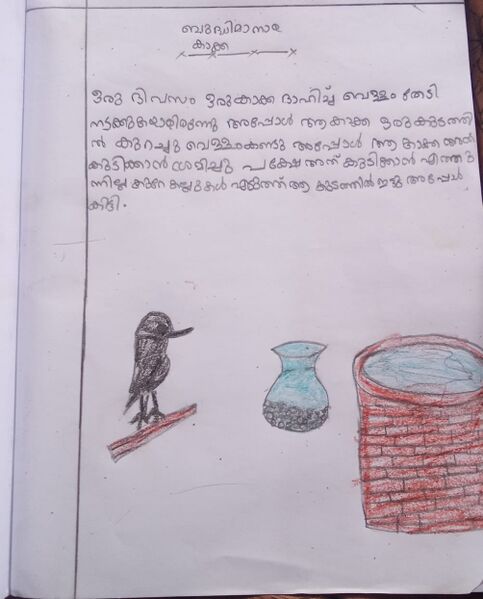 ബുദ്ധിമാനായ
കാക്ക
ഒരു ദിവസം ഒരുകാക്ക ദാഹിച്ച് വെള്ളം തേടി
നടക്കുകയായിരുന്നു അപ്പോൾ ആ കാക്ക ഒരു കുടത്തി
ൽ കുറച്ചു വെള്ളംകണ്ടു അപ്പോൾ ആ കാക്ക അത്
കുടിക്കാൻ ശ്രമിച്ചു പക്ഷേ അത് കുടിക്കാൻ എത്തു
ന്നില്ല കുറേ കല്ലുകൾ എടുത്ത് ആ കുടത്തിൽ ഇട്ടു അപ്പോൾ
കിട്ടി.